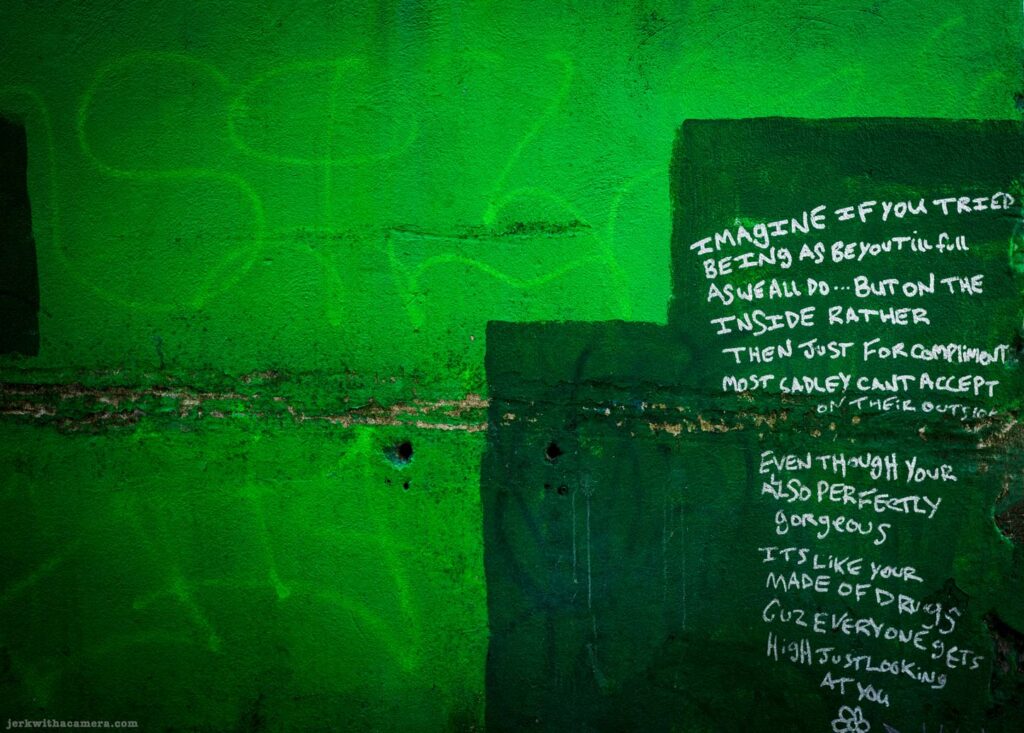 IMAGINE IF YOU TRIED
BEING AS BEYOUTill full
AS WE ALL DO... BUT ON THE
INSIDE RATHER
THEN JUST FOR COMPLIMENT
MOST SADLEY CANT ACCEPT
ON THEIR OUTSIDE
EVEN THOUGH YOUR
ALSO PERFECTLY
gorgeous
ITS LIKE YOUR
MADE OF DRUgS
CUZ EVERYONE gETS
HIGH JUST LOOKING
AT YOU
jerkwithacamera.com